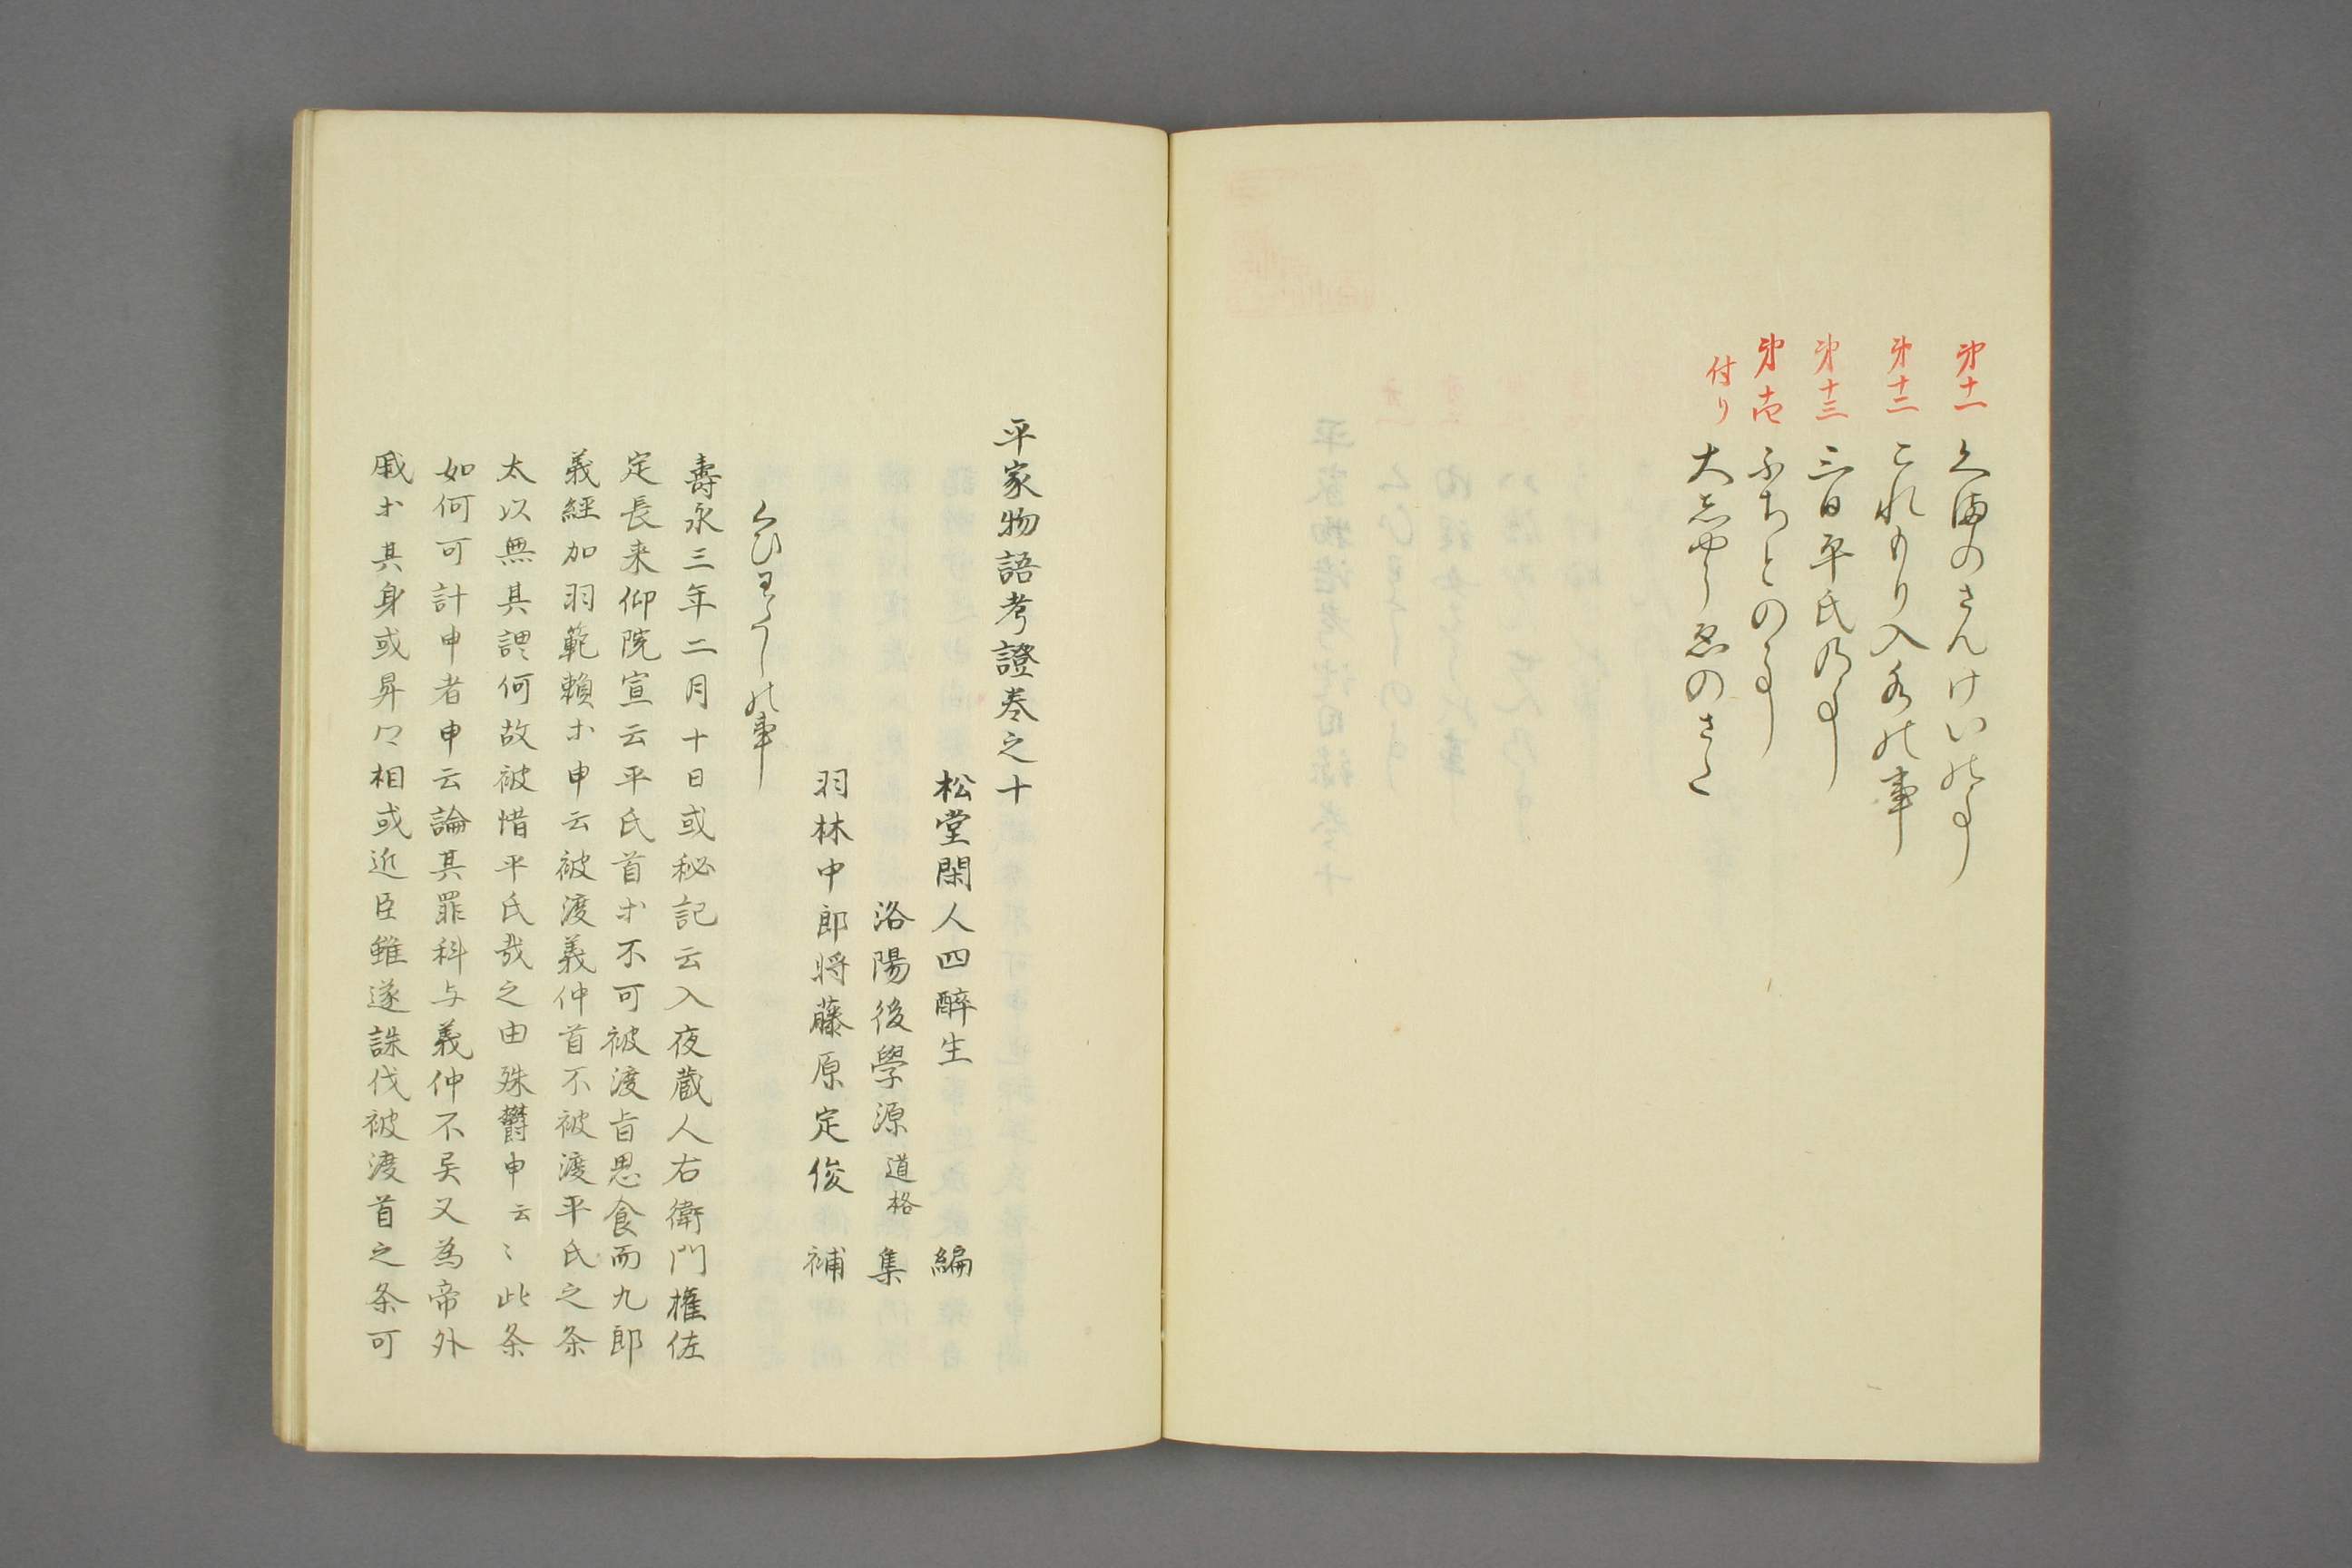 第十一 くまのさんけいの事
第十二 これもり入水の事
第十三 三日平氏の事
第十四 ふちとの事
付り 大志やうゑのさた
平家物語考證巻之十
松堂閑人四醉生 編
洛陽後學源道格 集
羽林中郎将藤原定俊 補
くひわたしの事
壽永三年二月十日或秘記云入夜蔵人右衛門権佐
定長来仰院宣云平氏首ホ不可被渡旨思食而九郎
義經加羽範頼ホ申云被渡義仲首不被渡平氏之条
太以無其謂何故被惜平氏哉之由殊欝申云〻此条
如何可計申者申云論其罪科与義仲不異又為帝外
戚ホ其身或昇卿相或近臣雖遂誅伐被渡首之条可